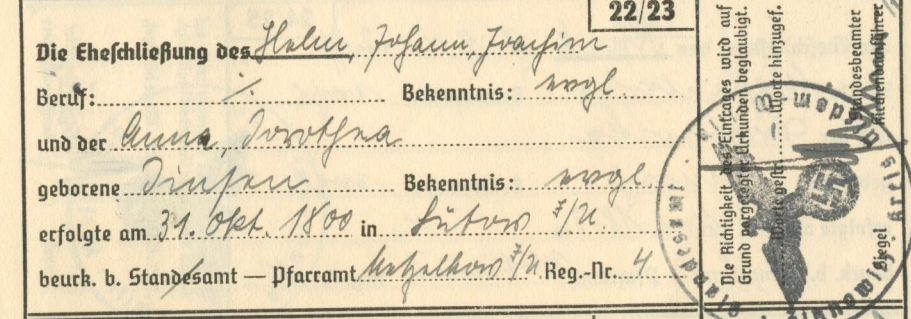 22/23
Die Eheschließung des Helm, Johann, Joachim
Beruf: ./. Bekenntnis: evgl
und der Anna, Dorothea
geborene Dinsen Bekenntnis: evgl
erfolgte am 31. Okt. 1800 in Lütow z/U
beurk. b. Standesamt — Pfarramt Metzelkow z/U Reg.-Nr. 4
Die Richtigkeit des Eintrages wird auf
Grund vorgelegter Urkunden beglaubigt.
Worte gestr. Worte hinzugef.
Standesbeamter
Siegel